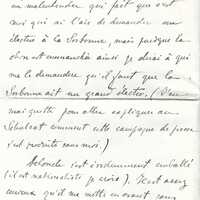 un malentendu qui fait que c'est
moi qui ai l'air de demander un
électeur à la Sorbonne, mais puisque la
chose est emmanchée ainsi je dirai à qui
me le demandera qu'il faut que la
Sorbonne ait un grand électeur.
mais quitte pour aller expliquer au
comment cette campagne de presse
s'est produite sans moi)
Delacle est évidemment emballé
(il est nationaliste je crois). Il est assez
curieux qu'il me mette en avant pour